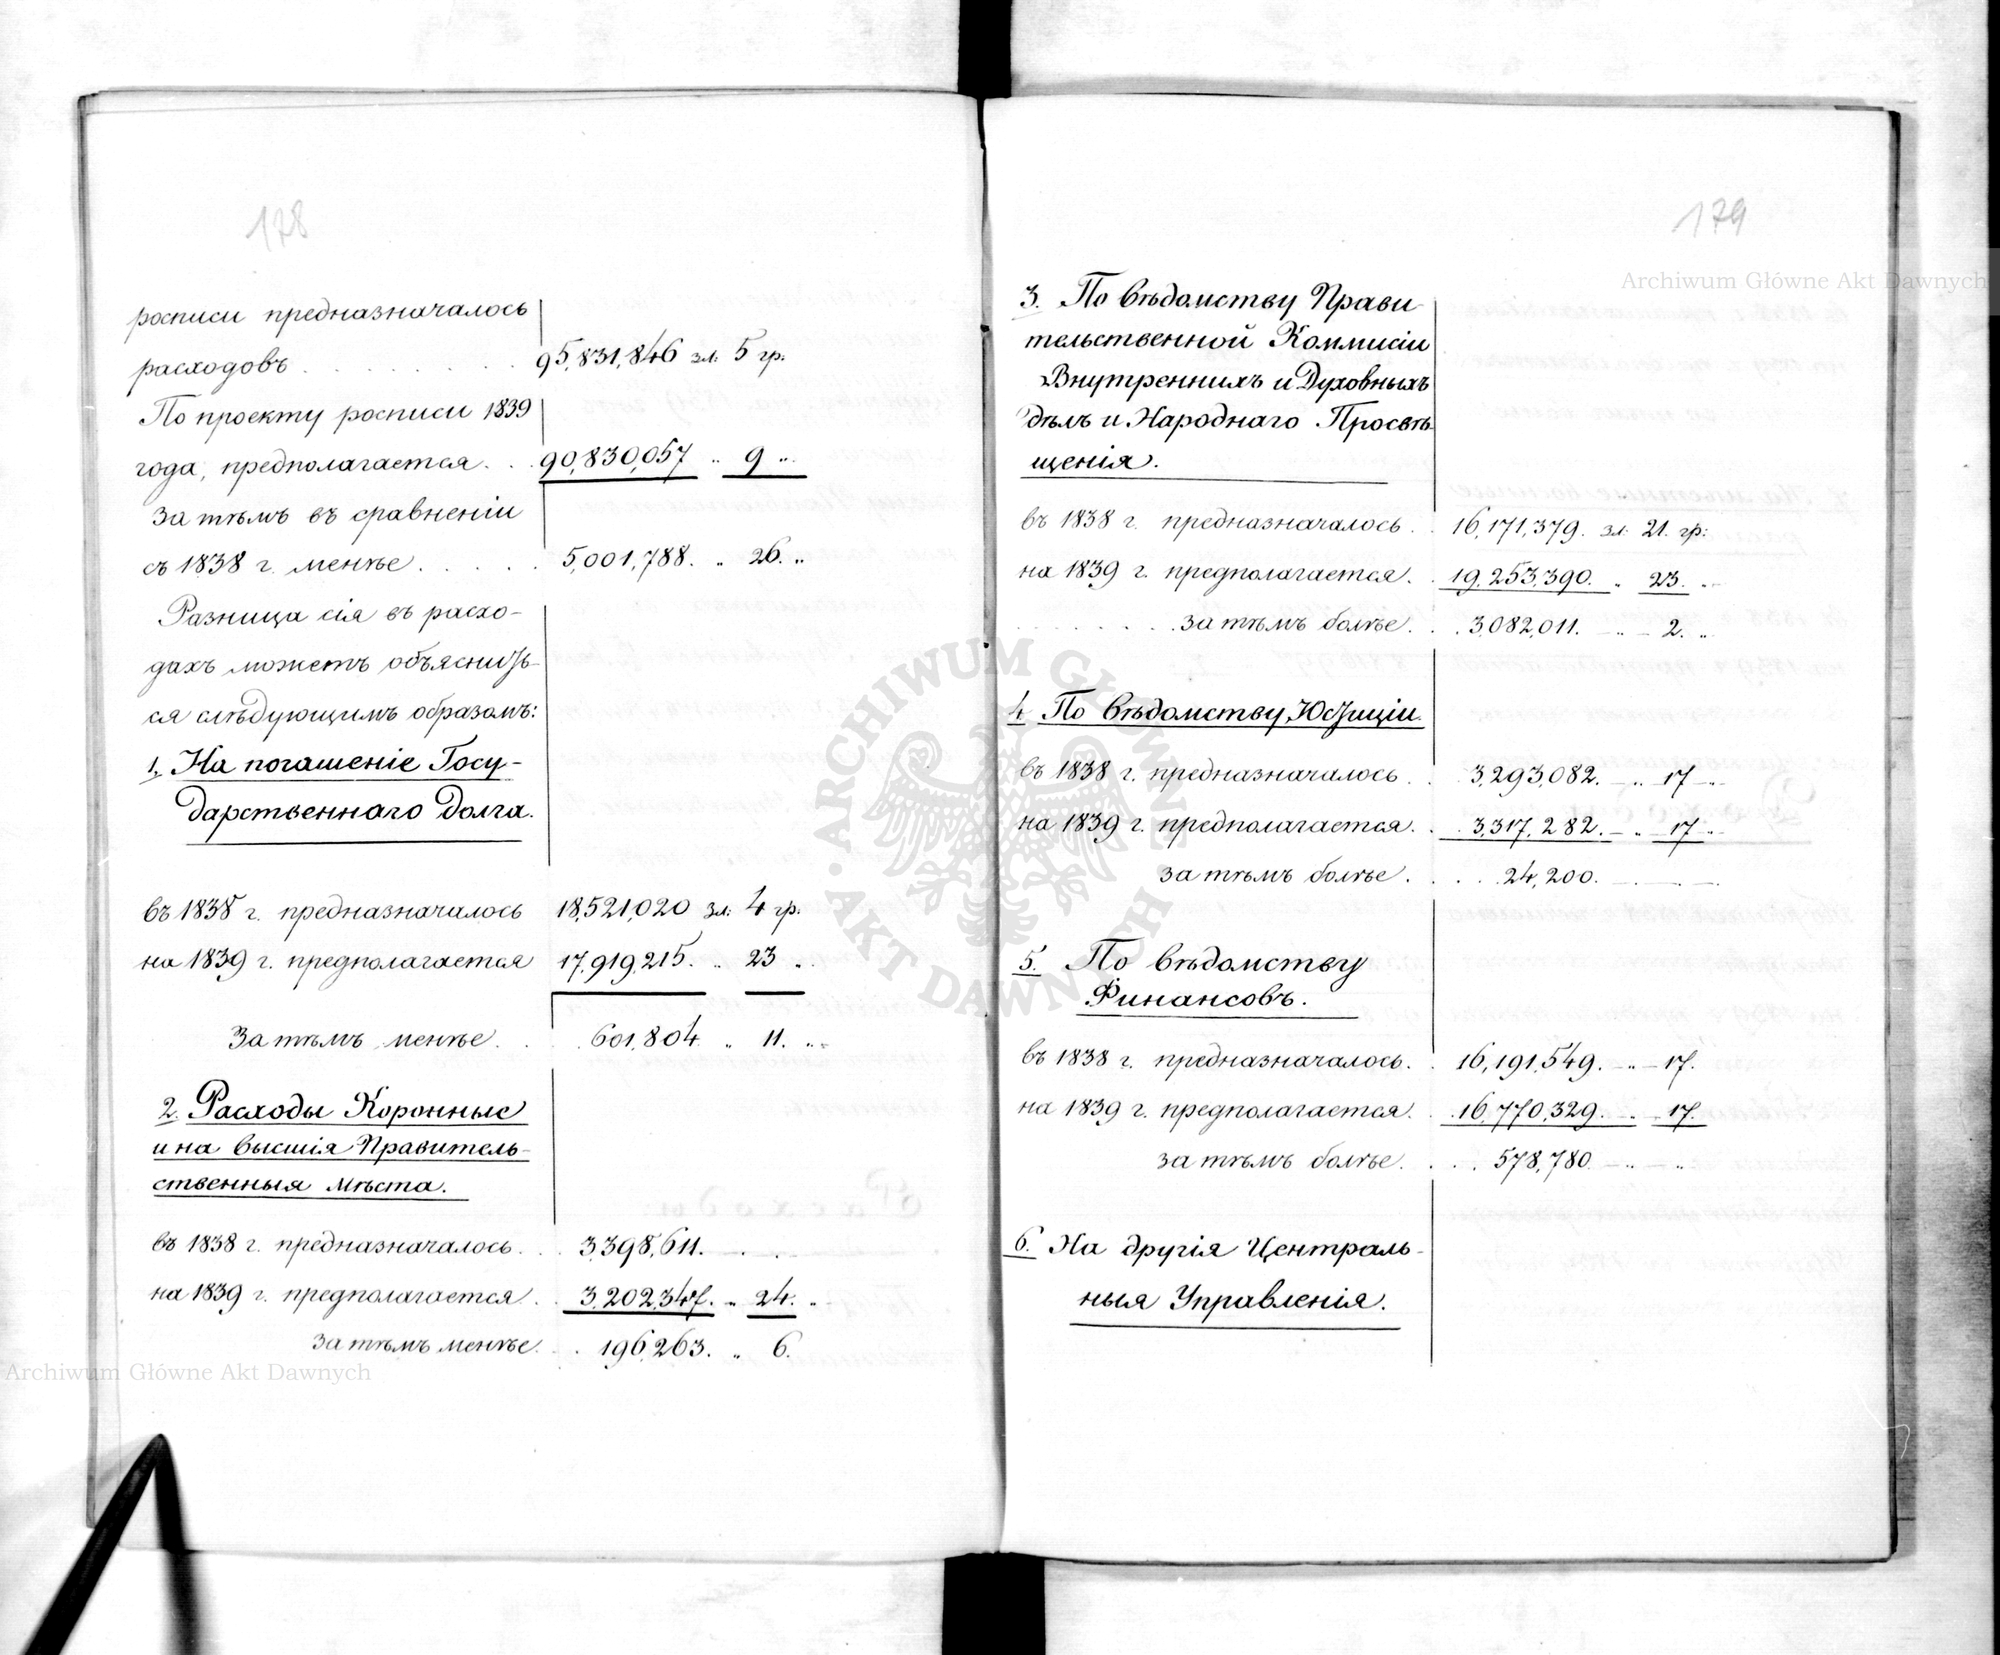 178
росписи предназначалось
расходовъ . . . . . . . . . 95,831,846 зл: 5 гр:
По проекту росписи 1839
года, предполагается . . . 90,830,057 „ 9 „
За тѣмъ въ сравненіи
съ 1838 г. менѣе . . . . . 5,001,788. „ 26. „
Разница сія въ расхо-
дахъ можетъ объяснить-
ся слѣдующимъ образомъ:
1, На погашеніе Госу-
дарственнаго Долга.
въ 1838 г. предназначалось 18,521,020 зл: 4 гр:
на 1839 г. предполагается 17,919,215. „ 23 „
За тѣмъ менѣе . . . 601,804 „ 11. „
2. Расходы Коронные
и на высшія Правитель-
ственныя мѣста.
въ 1838 г. предназначалось . . 3,398,611. . . .
на 1839 г. предполагается . . 3,202,347. „ 24. „
За тѣмъ менѣе . . 196,263. „ 6.
179
3. По вѣдомству Прави-
тельственной Коммисіи
Внутреннихъ и Духовныхъ
дѣлъ и Народнаго Просвѣ-
щенія.
въ 1838 г. предназначалось . . 16,171,379. зл: 21. гр:
на 1839 г. предполагается . . 19,253,390. „ 23. „
. . . . . . . . за тѣмъ болѣе . . . 3,082,011. — „ — 2. „
4. По вѣдомству Юстиціи.
въ 1838 г. предназначалось . . 3,293,082. — „ — 17 — „
на 1839 г. предполагается . . . 3,317,282. — „ — 17 — „
за тѣмъ болѣе . . . . 24,200. — . — . —
5. По вѣдомству
Финансовъ.
въ 1838 г. предназначалось . . 16,191,549. — „ — 17.
на 1839 г. предполагается . . 16,770,329. „ 17.
за тѣмъ болѣе . . . . 578,780. — „ — „
6. На другія Централь-
ныя Управленія.
Archiwum Główne Akt Dawnych
Archiwum Główne Akt Dawnych
ARCHIWUM GŁÓWNE AKT DAWNYCH